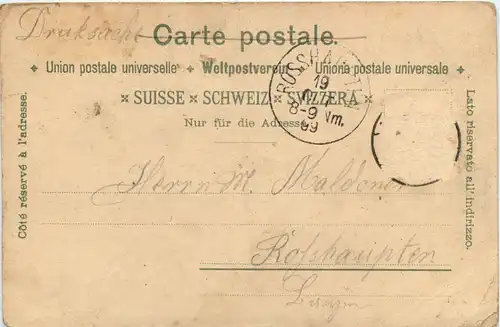 Drucksache Carte postale.
✦ Union postale universelle ✦ Weltpostverein ✦ Unione postale universale ✦
× SUISSE × SCHWEIZ × SVIZZERA ×
Nur für die Adresse
ROSSHAUPTEN
19
8-9 Nm.
99
Côté réservé à l'adresse.
Lato riservato all' indirizzo.
Herrn M.
Roßhaupten